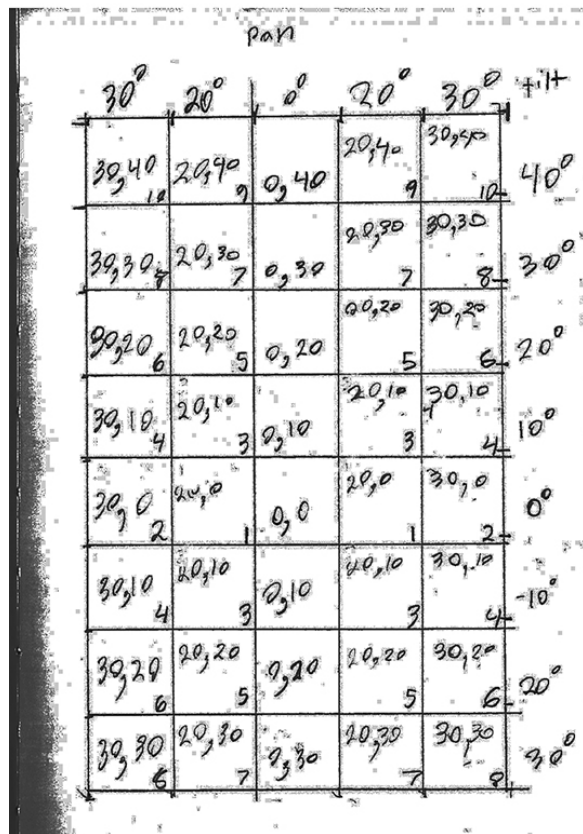 pan
30° 20° 0° 20° 30° tilt
30,40 10 20,40 9 0,40 20,40 9 30,40 10 40°
30,30 8 20,30 7 0,30 20,30 7 30,30 8 30°
30,20 6 20,20 5 0,20 20,20 5 30,20 6 20°
30,10 4 20,10 3 0,10 20,10 3 30,10 4 10°
30,0 2 20,0 1 0,0 20,0 1 30,0 2 0°
30,10 4 20,10 3 0,10 20,10 3 30,10 4 -10°
30,20 6 20,20 5 0,20 20,20 5 30,20 6 20°
30,30 6 20,30 7 0,30 20,30 7 30,30 8 30°